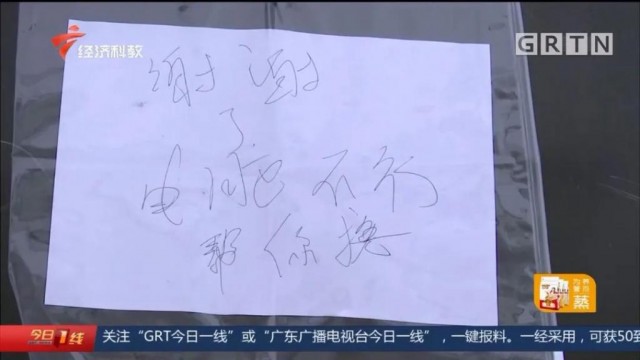 经济科教
GRTN
谢谢
了
电池不行
帮你换
蒸
今日1线
关注“GRT今日一线”或“广东广播电视台今日一线”，一键报料。一经采用，可获50至